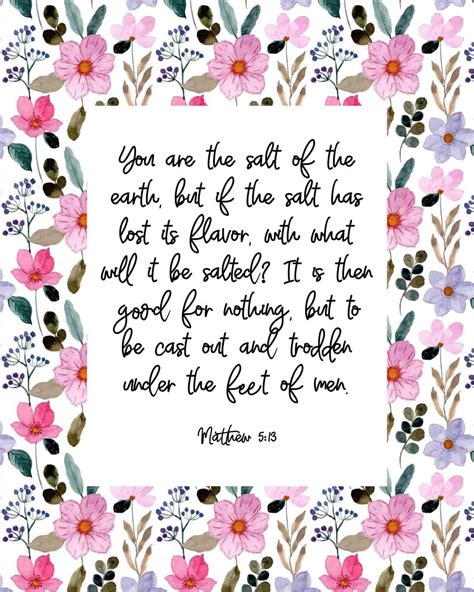 You are the salt of the
earth, but if the salt has
lost its flavor, with what
will it be salted? It is then
good for nothing, but to
be cast out and trodden
under the feet of men.
Matthew 5:13